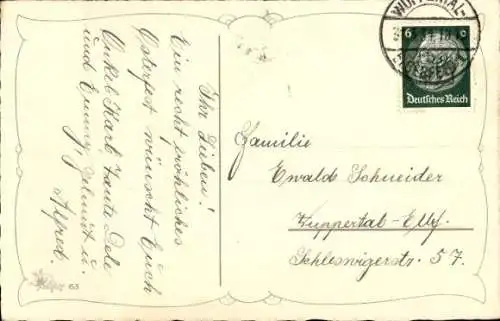 Ihr Lieben!
Ein recht fröhliches
Osterfest wünscht Euch
Onkel Karl Tante Dele
und
Alfred.
Familie
Ewald Schneider
Wuppertal-Elbf.
Schleswigerstr. 57.
WUPPERTAL-
6
Deutsches Reich
63